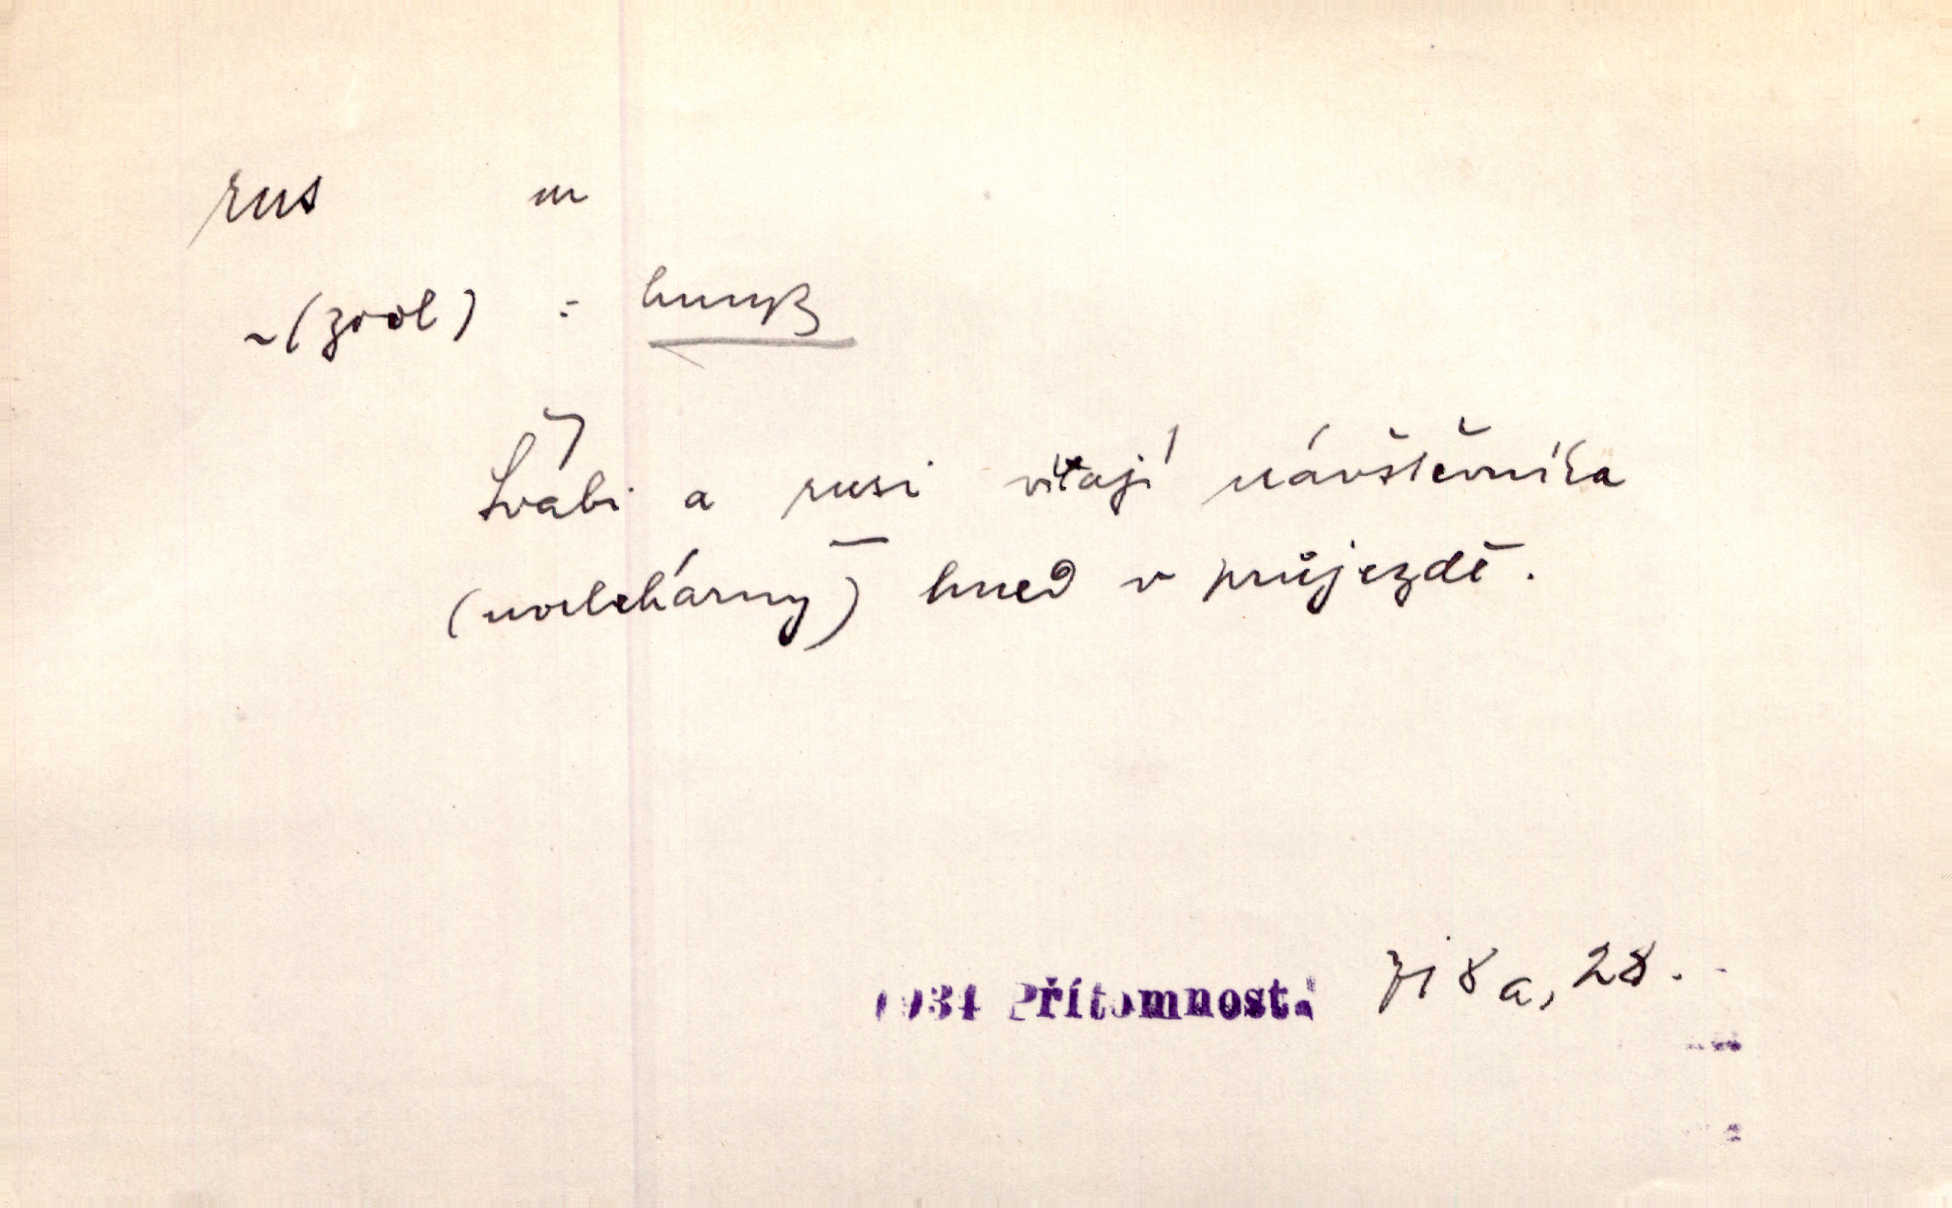 rus m
~ (zool) : hmyz
Švábi a rusi vítají návštěvníka
(noclehárny) hned v průjezdě.
1934 Přítomnost. 718 a, 28.